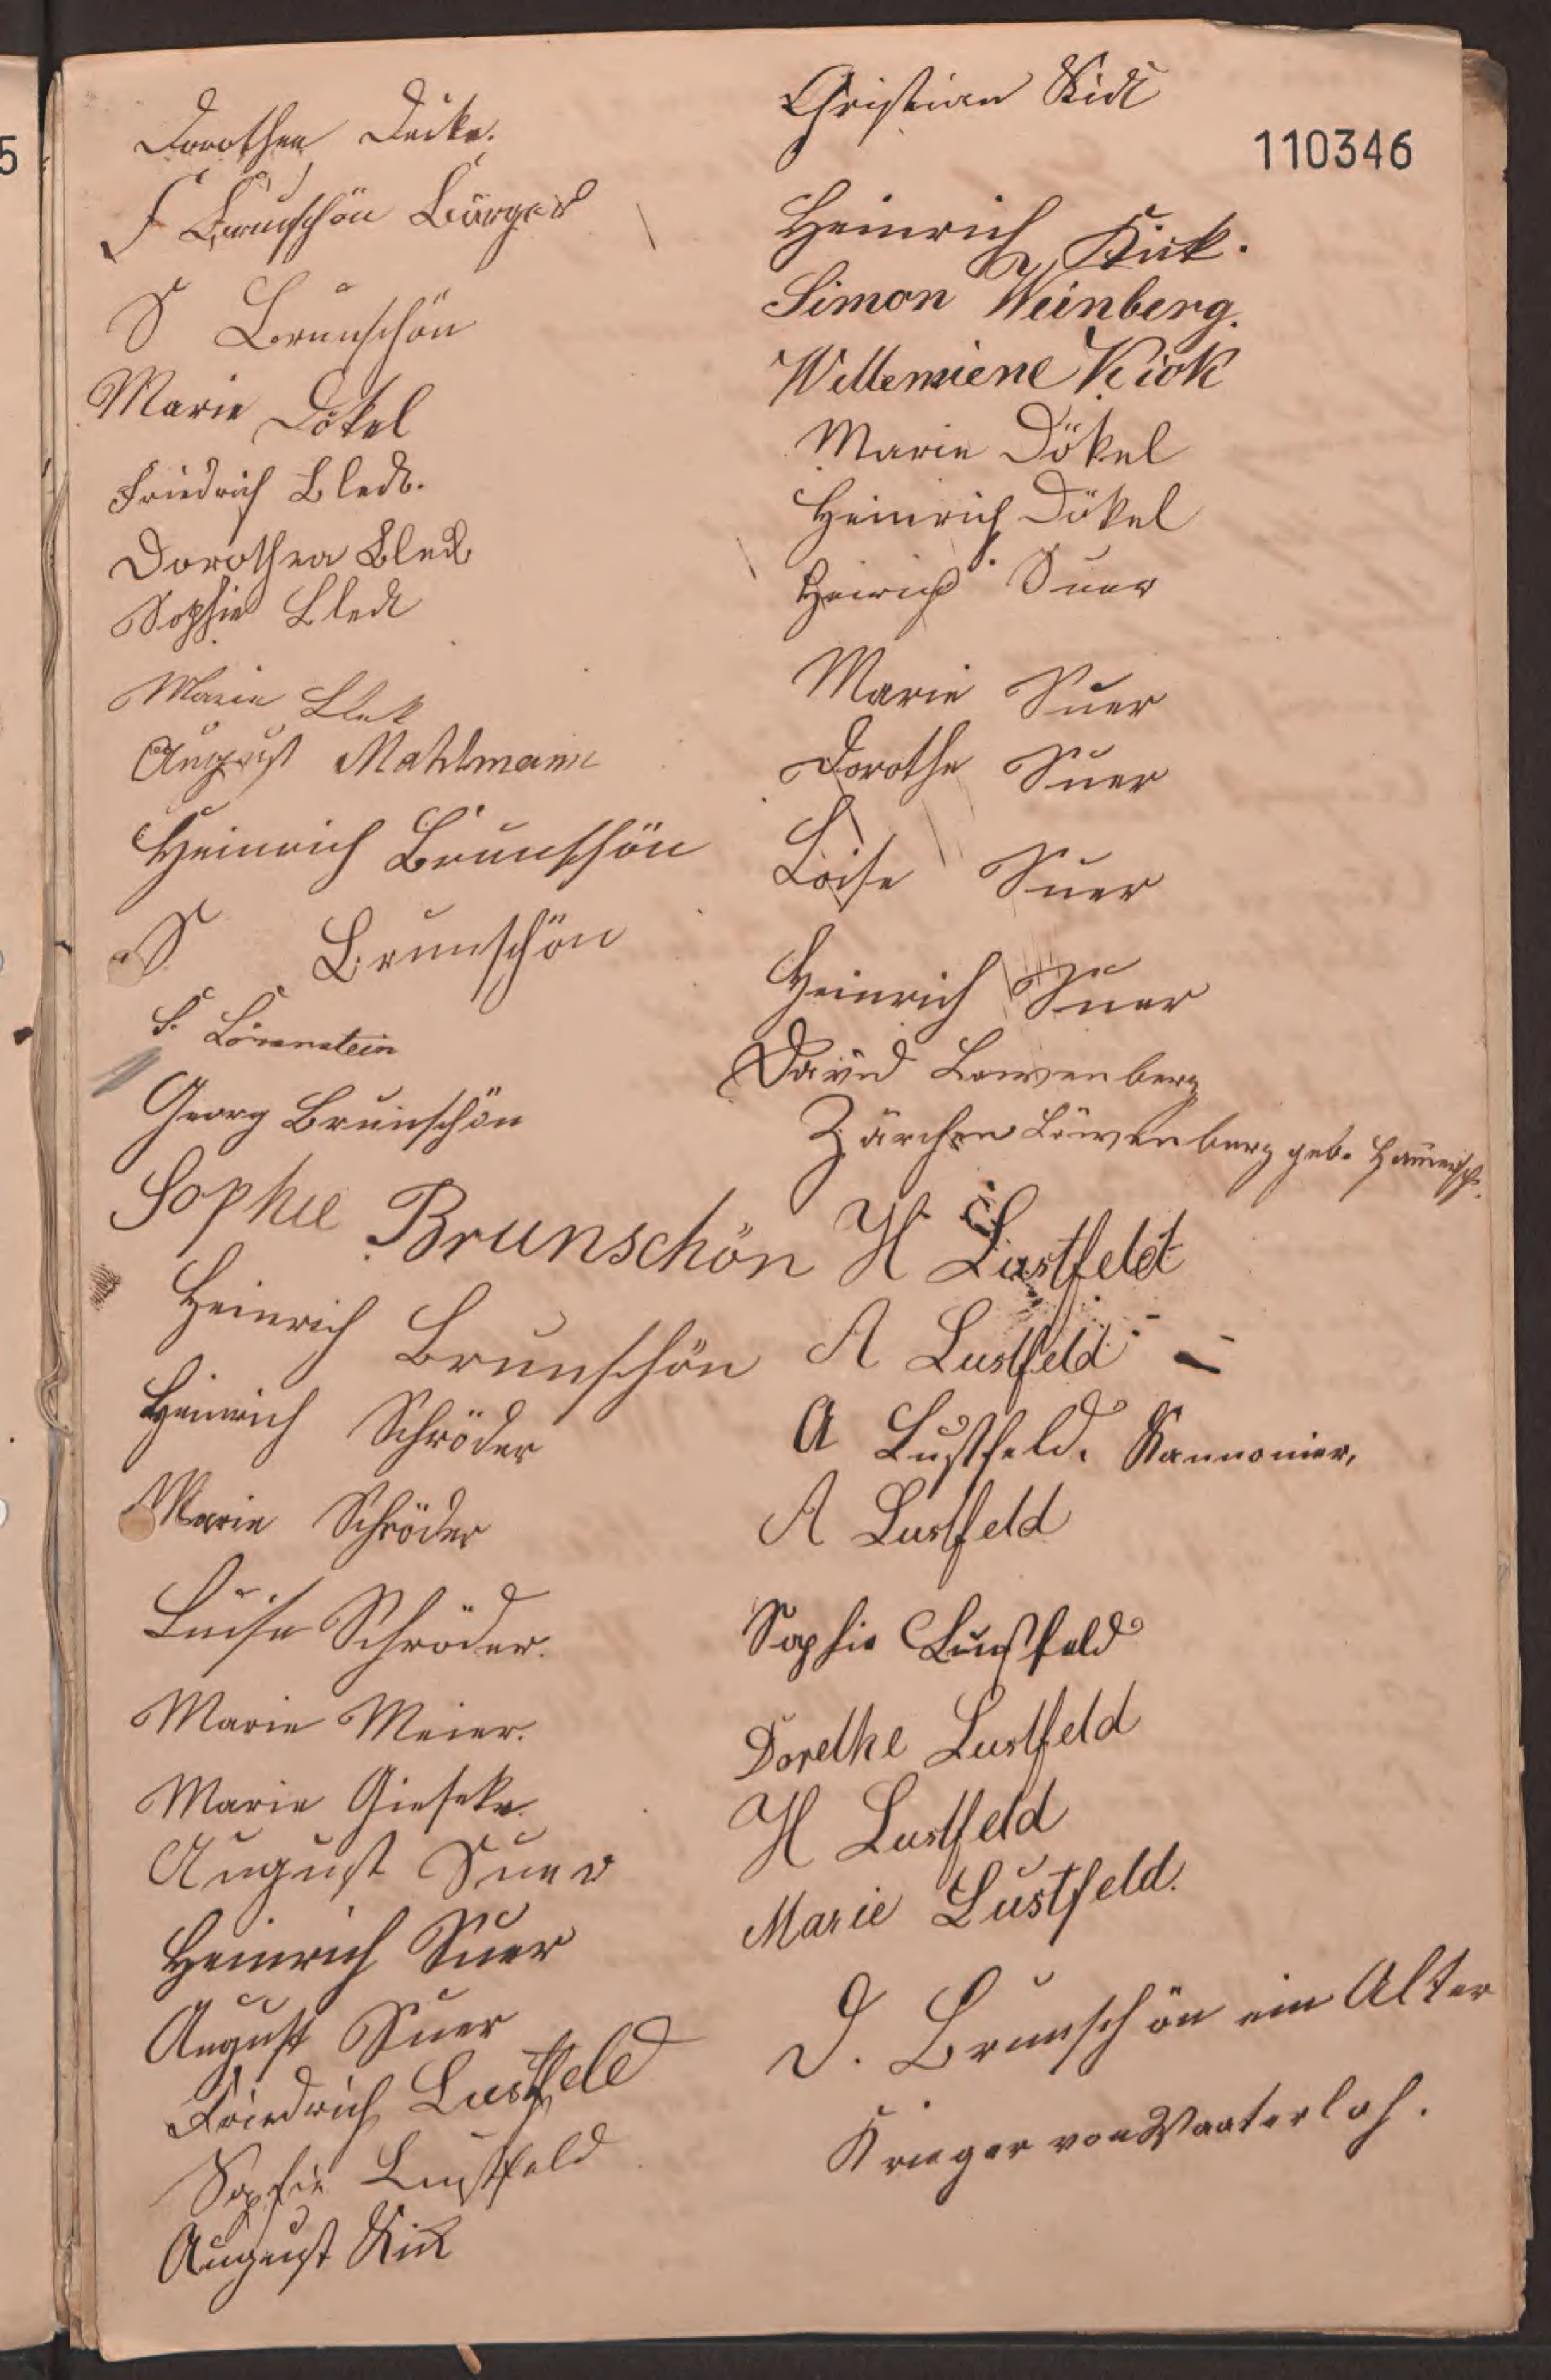 Dorothea Deike.
F Brunschön Bürger
S Brunschön
Marie Dökel
Friedrich Bleck.
Dorothea Bleck
Sophie Bleck
Marie Blek
August Mahlmann
Heinrich Brunschön
S Brunschön
S. Löwenstein
Georg Brunschön
Sophie Brunschön
Heinrich Brunschön
Heinrich Schröder
Marie Schröder
Luise Schröder.
Marie Meier.
Marie Gieseke.
August Suer
Heinrich Suer
August Suer
Friedrich Lustfeld
Sophie Lustfeld
August Kick
Christian Kick
110346
Heinrich Kick.
Simon Weinberg.
Willemiene Kick
Marie Dökel
Heinrich Dökel
Heirich Suer
Marie Suer
Dorothe Suer
Loise Suer
Heinrich Suer
David Lowenberg
Zärchen Löwenberg geb.
H Lustfeldt
A Lustfeld
A Lustfeld. Kannonier,
A Lustfeld
Sophie Lustfeld
Dorethe Lustfeld
H Lustfeld
Marie Lustfeld.
D. Brunschön ein Alter
Krieger von Waaterloh.